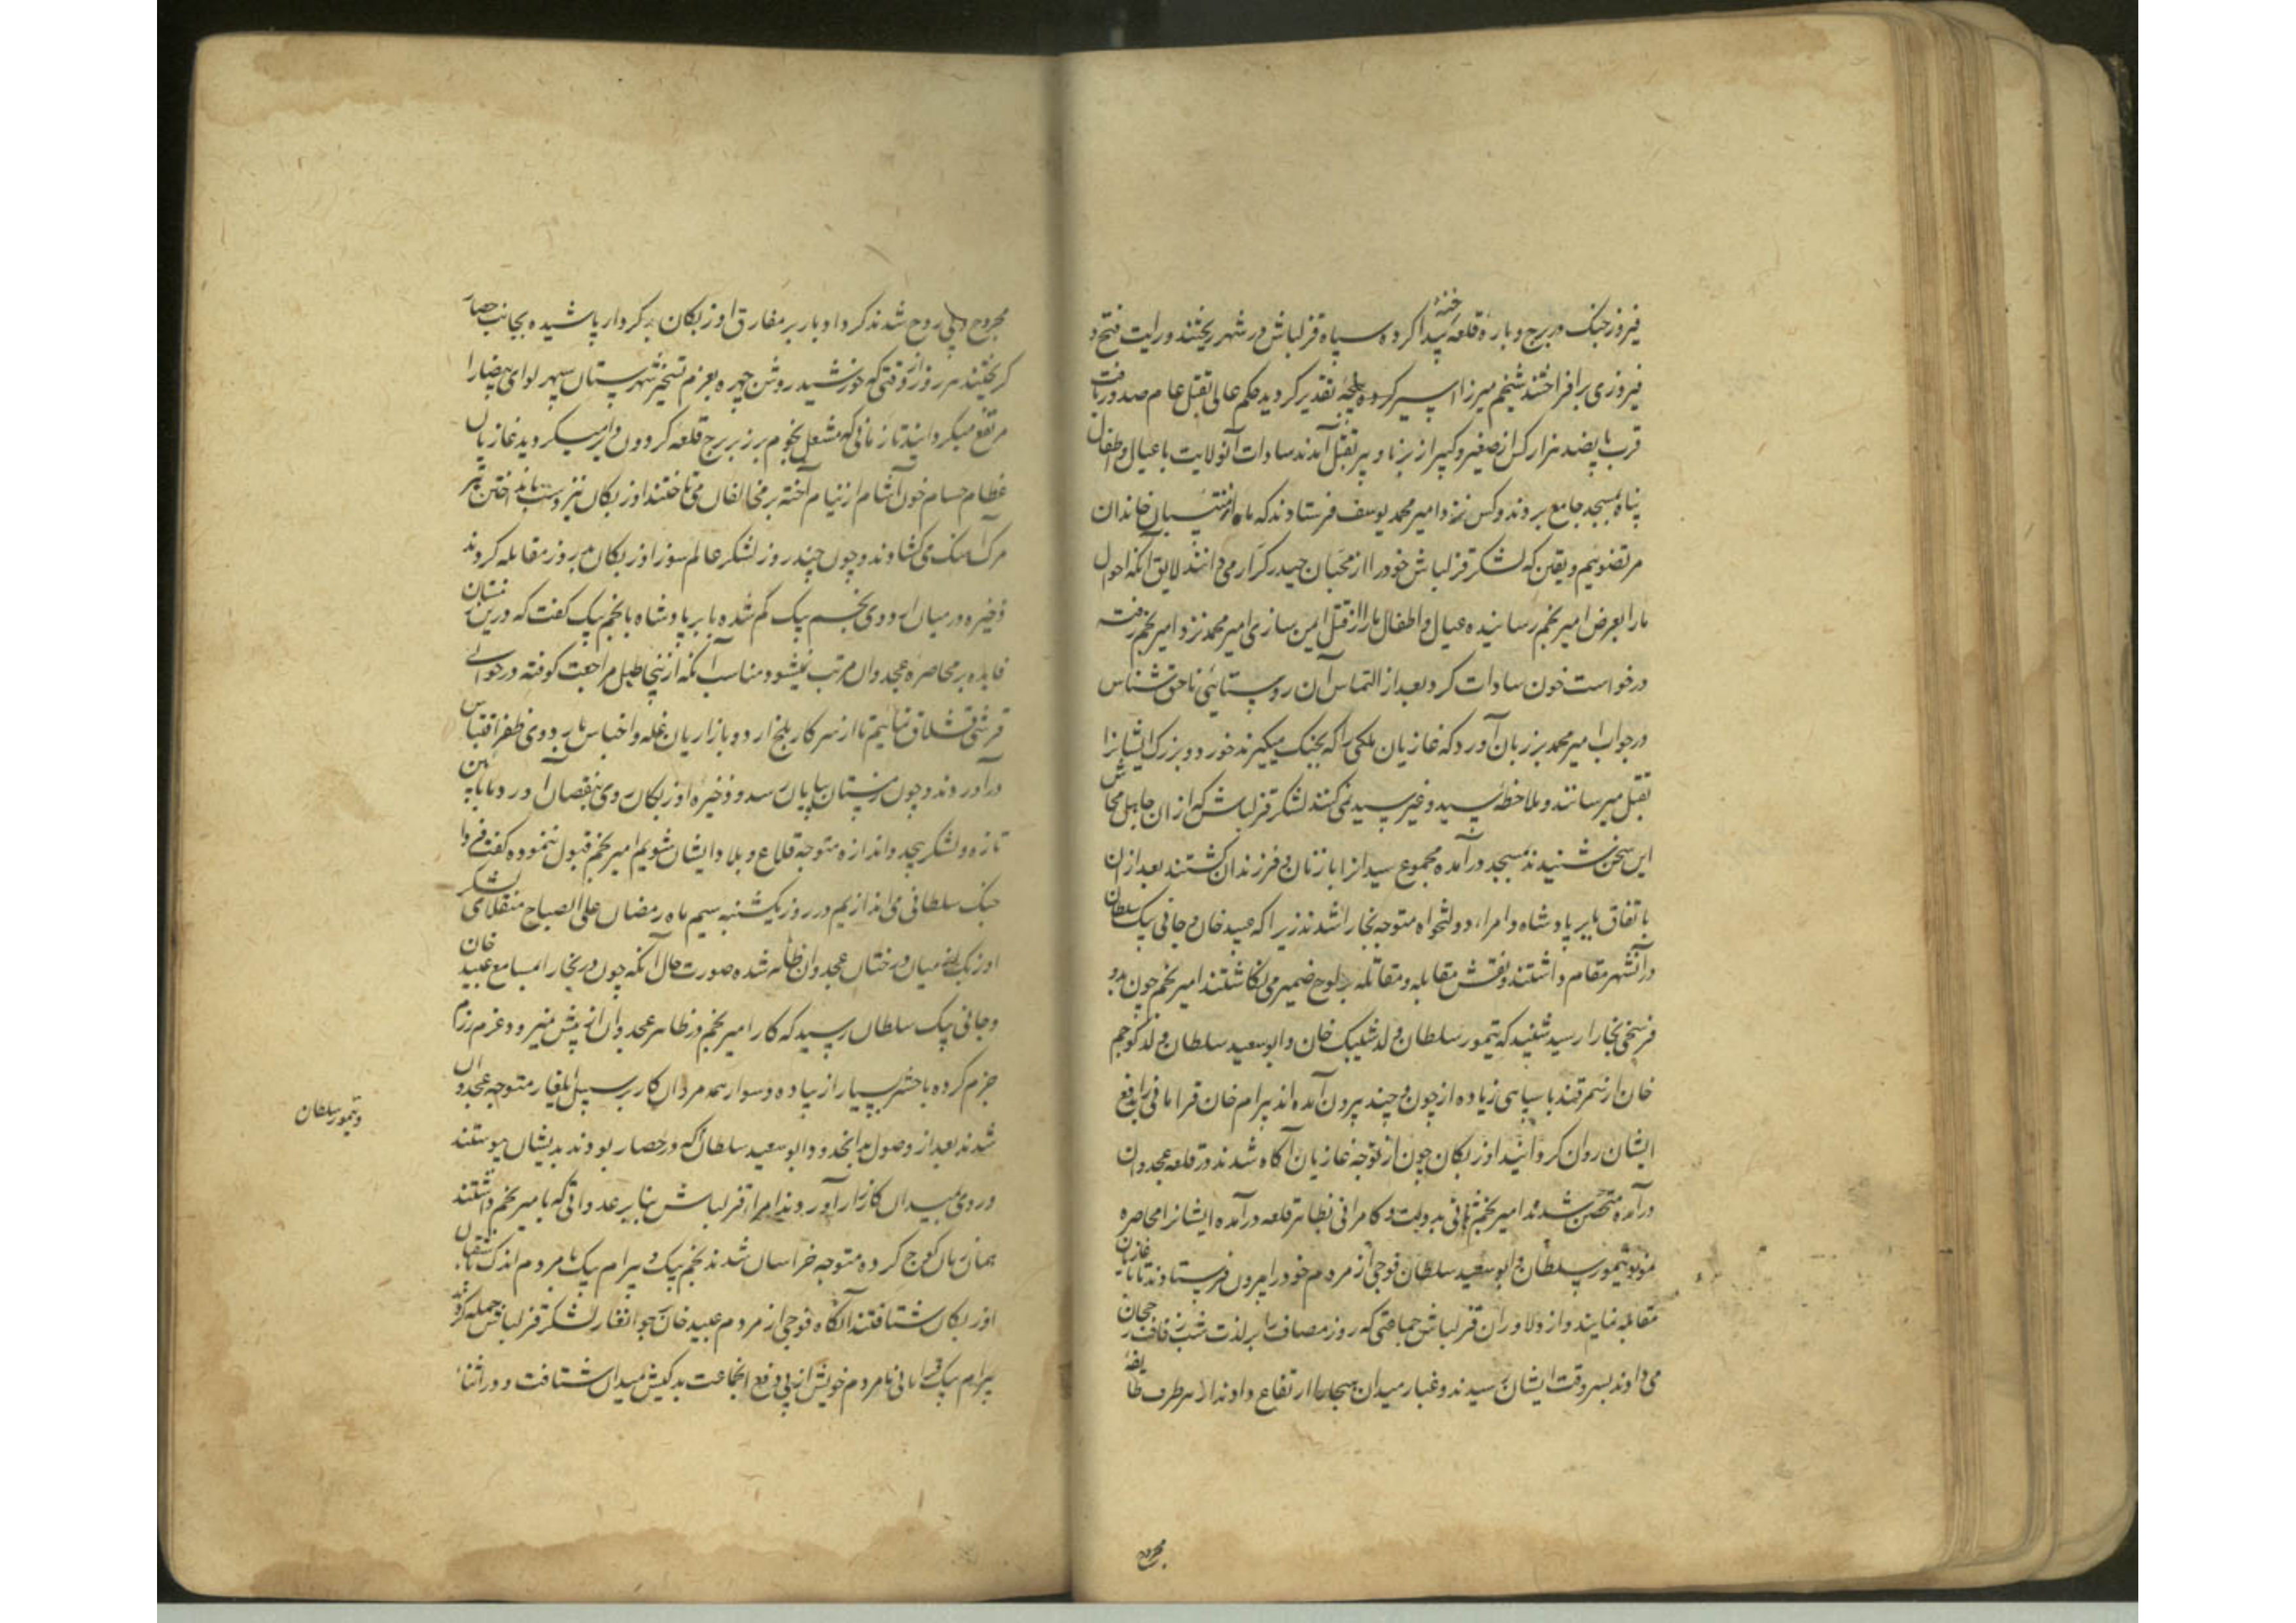 فیروز جنک در برج و باره قلعه رخنه پیدا کرده سپاه قزلباش در شهر ریختند و رایت فتح و
فیروزی برافراختند شیخم میرزا اسیر سرپنجه تقدیر کردید حکم عالی بقتل عام صدور یافت
قرب پانصد هزار کس از صغیر و کبیر از برنا و پیر بقتل آمدند سادات آنولایت با عیال و اطفال
پناه بمسجد جامع بردند و کس نزد امیر محمد یوسف فرستادند که ما از منتسبان خاندان
مرتضویم و یقین که لشکر قزلباش خود را از محبان حیدر کرار می دانند لایق آنکه احوال
ما را بعرض امیر نجم رسانیده عیال و اطفال ما را از قتل ایمن سازی امیر محمد نزد امیر نجم رفته
درخواست خون سادات کرد بعد از التماس آن روستائی ناحق شناس
در جواب امیر محمد بر زبان آورد که غازیان ملکی را که بجنک میکیرند خورد و بزرک ایشانرا
بقتل میرسانند و ملاحظه سید و غیر سید نمی کنند لشکر قزلباش که از آن جاهل
این سخن شنیدند بمسجد درآمده مجموع سیدانرا با زنان و فرزندان کشتند بعد از ان
باتفاق بابر پادشاه و امراء دولتخواه متوجه بخارا شدند زیرا که عبید خان و جانی بیک سلطان
در آنشهر مقام داشتند و نقش مقابله و مقاتله بر لوح ضمیر می نکاشتند امیر نجم چون بدو
فرسخی بخارا رسید شنید که تیمور سلطان ولد شیبک خان و ابو سعید سلطان ولد کوجم
خان از سمرقند با سپاهی زیاده از چون و چند بیرون آمده اند بیرام خان قرامانی را بدفع
ایشان روان کردانید اوزبکان چون از توجه غازیان آکاه شدند در قلعه عجدوان
درآمده متحصن شدند امیر نجم ثانی بدولت و کامرانی بظاهر قلعه درآمده ایشانرا محاصره
نمود تیمور سلطان و ابو سعید سلطان فوجی از مردم خود را بیرون فرستادند تا با غازیان
مقابله نمایند و از دلاوران قزلباش جماعتی که روز مصاف را بر لذت شب زفاف رجحان
می دادند بسر وقت ایشان رسیدند و غبار میدان هیجا را ارتفاع دادند از هر طرف طایفه
مجروح
مجروح و بی روح شدند کرد ادبار بر مفارق اوزبکان بد کردار پاشیده بجانب حصار
کریختند هر روز از وقتی که خورشید روشن چهره بعزم تسخیر شهرستان سپهر لوای بیضا را
مرتفع میکردانید تا زمانی که مشعل نجوم بر زبر برج قلعه کردون دایر میکردید غازیان
عظام حسام خون آشام از نیام آخته بر مخالفان می تاختند اوزبکان نیز دست بانداختن تیر
مرک آهنک می کشادند و چون چند روز لشکر عالم سوز اوزبکان هر روز مقابله کردند
ذخیره در میان اردوی نجم بیک کم شده بابر پادشاه با نجم بیک کفت که درین زمستان
فایده بر محاصره عجدوان مرتب نمیشود مناسب آنکه از اینجا طبل مراجعت کوفته در حوالی
قرشی قشلاق نمائیم تا از سرکار بلخ اردو بازاریان غله و اجناس باردوی ظفر اقتباس
درآورند و چون زمستان بپایان رسد و ذخیره اوزبکان روی بنقصان آورد با آیین
تازه و لشکر بیحد و اندازه متوجه قلاع و بلاد ایشان شویم امیر نجم قبول ننموده کفت فردا
جنک سلطانی می اندازیم در روز یکشنبه سیم ماه رمضان علی الصباح منقلای لشکر
اوزبک از میان درختان عجدوان ظاهر شده صورت حال آنکه چون در بخارا بمسامع عبید خان
و جانی بیک سلطان رسید که کار امیر نجم در ظاهر عجدوان از پیش نمیرود عزم رزم را
جزم کرده با حشر بسیار از پیاده و سوار همه مردان کار بر سبیل ایلغار متوجه عجدوان
شدند بعد از وصول بدانحدود ابو سعید سلطان که در حصار بودند بدیشان پیوستند
و تیمور سلطان
و روی بمیدان کارزار آوردند امراء قزلباش بنابر عداوتی که با میر نجم داشتند
همان زمان کوچ کرده متوجه خراسان شدند نجم بیک و بیرام بیک با مردم اندک باستقبال
اوزبکان شتافتند آنکاه فوجی از مردم عبید خان بر جوانغار لشکر قزلباش حمله کردند
بیرام بیک قرامانی با مردم خویش از پی دفع انجماعت بدکیش میدان شتافت و در اثنا